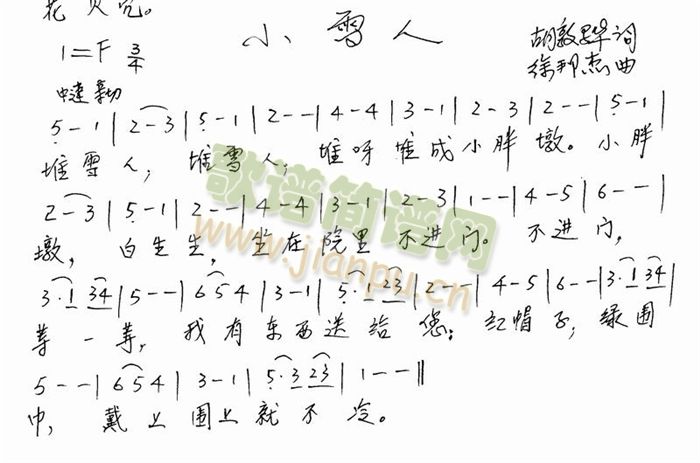 花 灭完。
小 雪 人
1=F 3/4
胡敦骅 词
徐邦杰 曲
中速
5 - 1 | 2 - 3 | 5 - 1 | 2 - - | 4 - 4 | 3 - 1 | 2 - 3 | 2 - - | 5 - 1 |
堆 雪 人, 堆 雪 人, 堆 呀 堆 成 小 胖 墩。 小 胖
2 - 3 | 5 - 1 | 2 - - | 4 - 4 | 3 - 1 | 2 - 3 | 1 - - | 4 - 5 | 6 - - |
墩, 白 生 生, 坐 在 院 里 不 进 门。 不 进 门,
3 · 1 3 4 | 5 - - | 6 5 4 | 3 - 1 | 5 · 1 2 3 | 2 - - | 4 - 5 | 6 - - | 3 · 1 3 4 |
等 一 等, 我 有 东 西 送 给 您; 红 帽 子, 绿 围
5 - - | 6 5 4 | 3 - 1 | 5 · 3 2 3 | 1 - - ‖
巾, 戴 上 围 上 就 不 冷。
歌谱简谱网
www.jianpu.cn